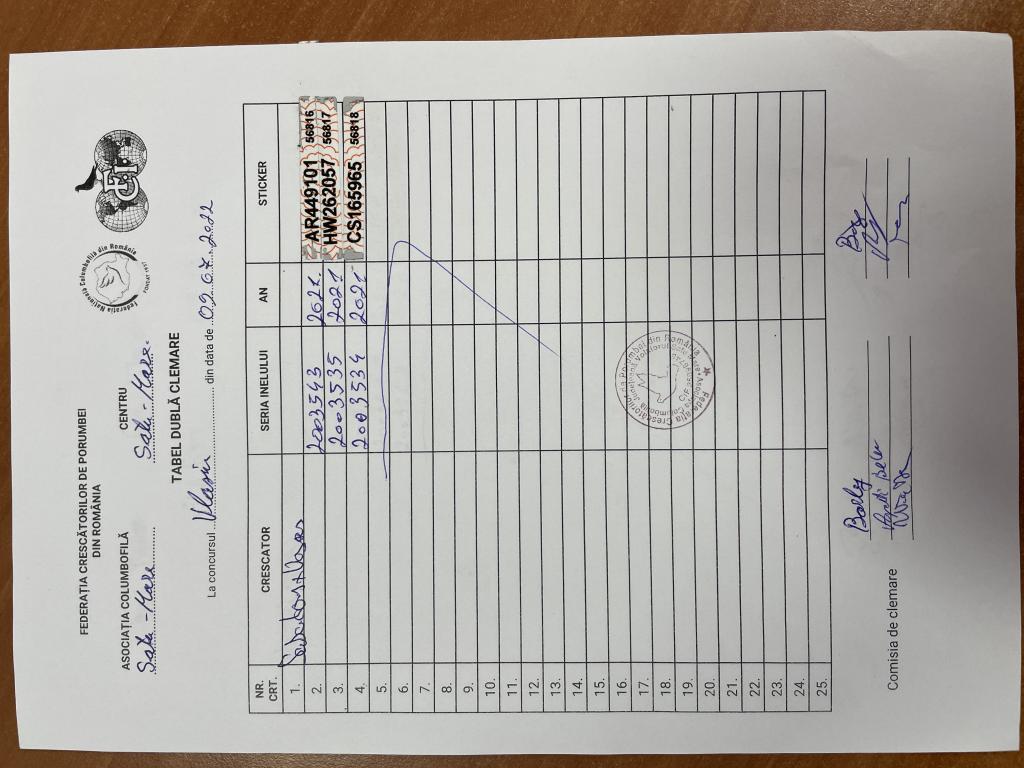 FEDERAȚIA CRESCĂTORILOR DE PORUMBEI
DIN ROMÂNIA
Federația Națională Columbofilă din România
FONDAT 1947
ASOCIAȚIA COLUMBOFILĂ
Satu-Mare
CENTRU
Satu-Mare
TABEL DUBLĂ CLEMARE
La concursul din data de 09.07.2022
NR. CRT. CRESCATOR SERIA INELULUI AN STICKER
1.
2. 2003543 2021 AR449101 56816
3. 2003535 2021 HW262057 56817
4. 2003534 2021 CS165965 56818
5.
6.
7.
8.
9.
10.
11.
12.
13.
14.
15.
16.
17.
18.
19.
20.
21.
22.
23.
24.
25.
Comisia de clemare